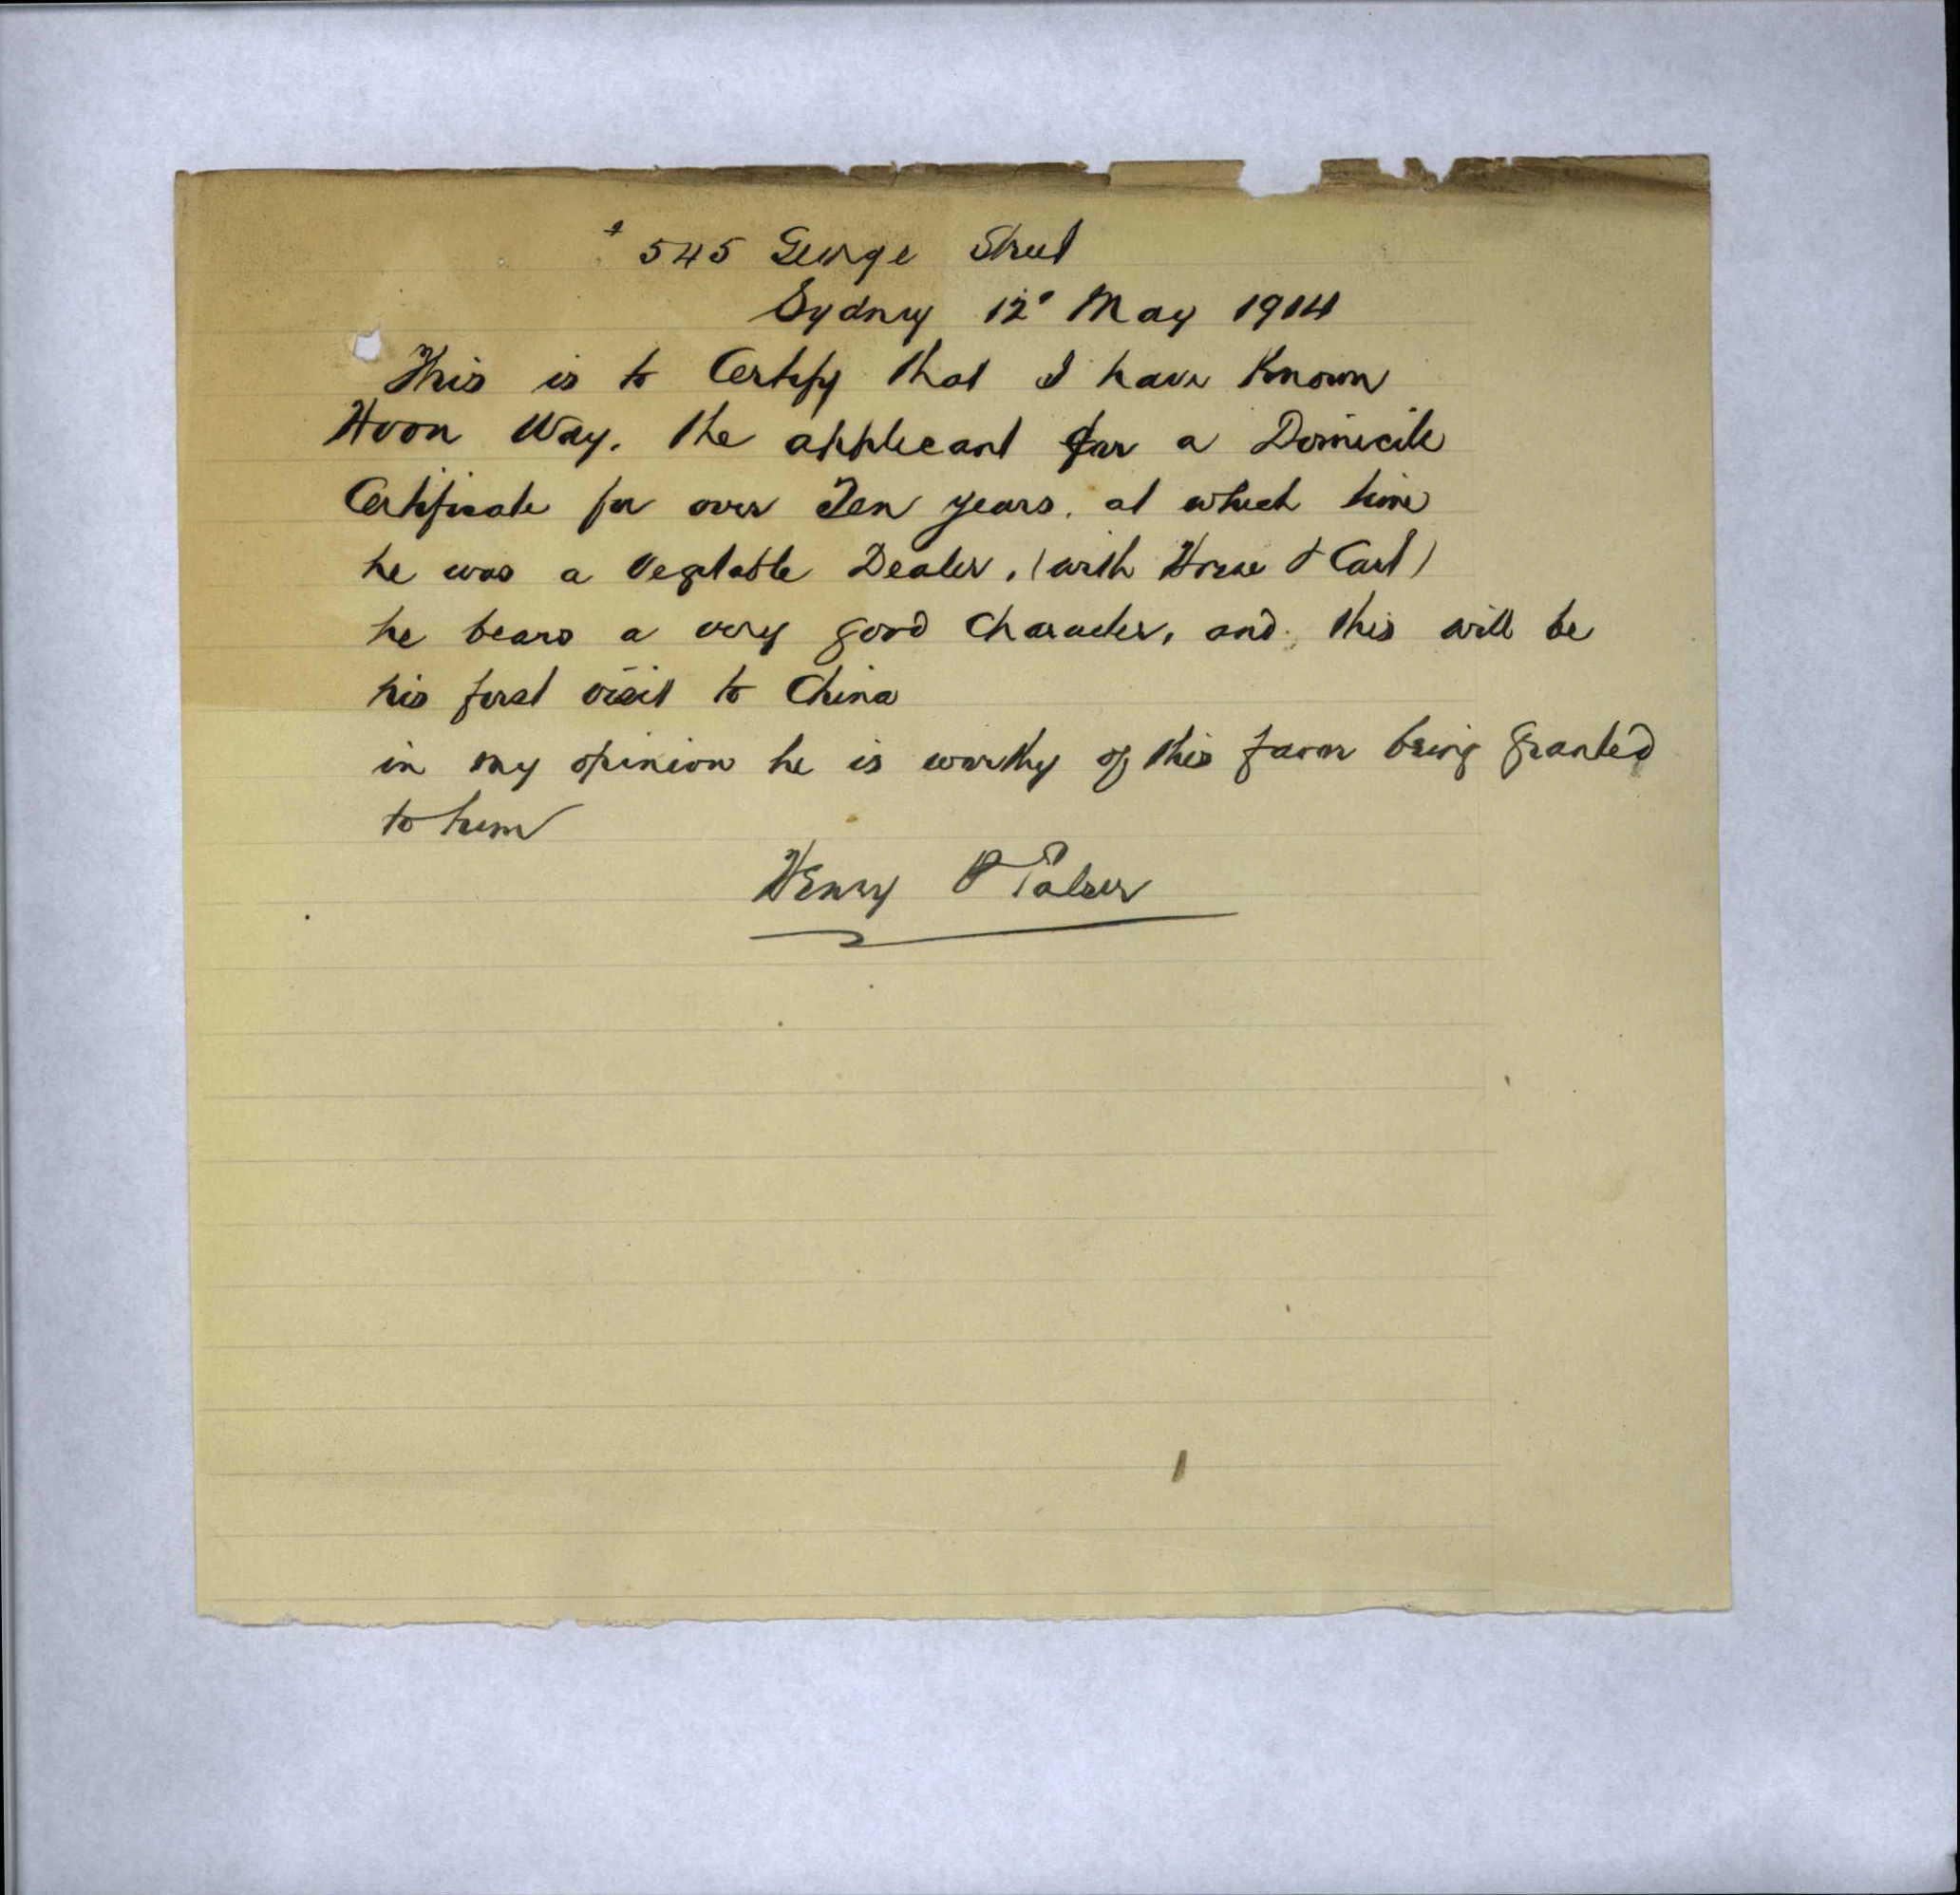 545 George Street
Sydney 12° May 1914
This is to Certify that I have Known
Hoon Way. the applicant for a Domicile
Certificate for over Ten years. at which time
he was a Vegetable Dealer, (with Horse & Cart)
he bears a very good Character, and this will be
his first visit to China
in my opinion he is worthy of this favor being granted
to him
Henry P